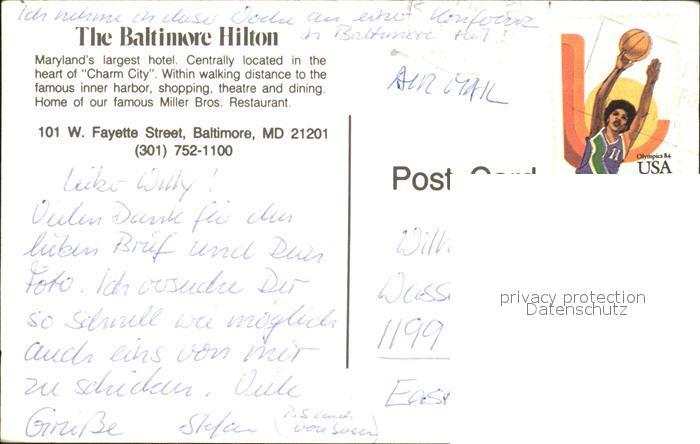 Ich nehme in dieser Woche an einer Konferenz
in Baltimore teil!
The Baltimore Hilton
Maryland's largest hotel. Centrally located in the
heart of "Charm City". Within walking distance to the
famous inner harbor, shopping, theatre and dining.
Home of our famous Miller Bros. Restaurant.
101 W. Fayette Street, Baltimore, MD 21201
(301) 752-1100
AIR MAIL
11
Olympics 84
USA
Post Card
Lieber Willy!
Vielen Dank für den
lieben Brief und Dein
Foto. Ich versuche Dir
so schnell wie möglich
auch eins von mir
zu schicken. Viele
Grüße Stefan (P.S auch
von Susan)
Wilh
Wasse
1199
East
privacy protection
Datenschutz